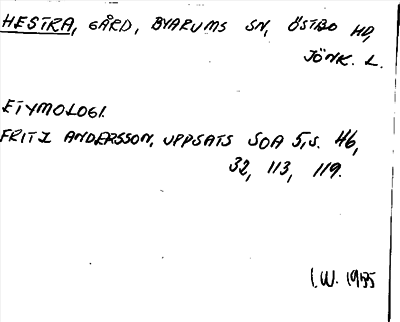 HESTRA, GÅRD, BYARUMS SN, ÖSTBO HD,
JÖNK. L.
ETYMOLOGI.
FRITZ ANDERSSON, UPPSATS SOA 5, S. 46,
32, 113, 119.
I.W. 1935